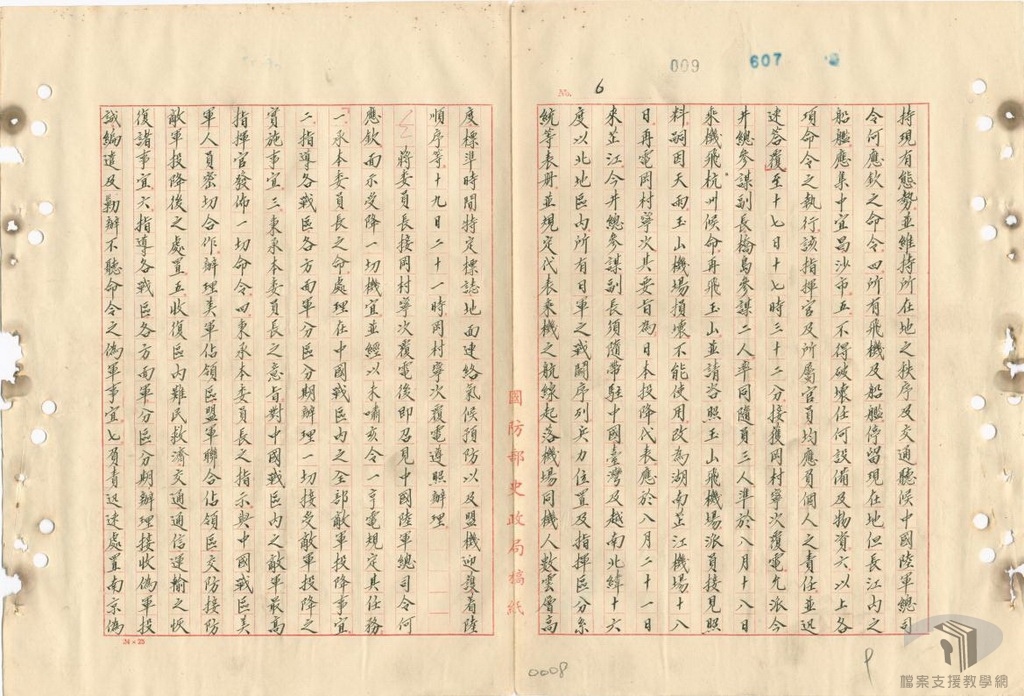 009
607
No. 6
持現有態勢並維持所在地之秩序及交通聽候中國陸軍總司
令何應欽之命令四所有飛機及船艦停留現在地但長江內之
船艦應集中宜昌沙市五不得破壞任何設備及物資六以上各
項命令之執行該指揮官及所屬官員均應負個人之責任並迅
速答覆至十七日十七時三十二分接獲岡村寧次覆電允派今
井總參謀副長橋島參謀二人率同隨員三人準於八月十八日
乘機飛杭州候命再飛玉山並請咨照玉山飛機場派員接見照
料嗣因天雨玉山機場損壞不能使用改為湖南芷江機場十八
日再電岡村寧次其要旨為日本投降代表應於八月二十一日
來芷江今井總參謀副長須隨帶駐中國臺灣及越南北緯十六
度以北地區內所有日軍之戰鬪序列兵力位置及指揮區分系
統等表冊並規定代表乘機之航線起落機場同機人數雲會高
國防部史政局稿紙
度標準時間特定標誌地面連絡氣候預防以及盟機迎護着陸
順序等十九日二十一時岡村寧次覆電遵照辦理
蔣委員長接岡村寧次覆電後即召見中國陸軍總司令何
應欽面示受降一切機宜並經以未嘯亥令一亨電規定其任務
「一承本委員長之命處理在中國戰區內之全部敵軍投降事宜
二指導各戰區各方面軍分區分期辦理一切接受敵軍投降之
實施事宜三秉承本委員長之意旨對中國戰區內之敵軍最高
指揮官發佈一切命令四秉承本委員長之指示與中國戰區美
軍人員密切合作辦理美軍佔領區盟軍聯合佔領區交防接防
敵軍投降後之處置五收復區內難民救濟交通通信運輸之恢
復諸事宜六指導各戰區各方面軍分區分期辦理接收偽軍投
誠編遣及勦辦不聽命令之偽軍事宜七負責迅速處置南京偽
24×25
0008
檔案支援教學網